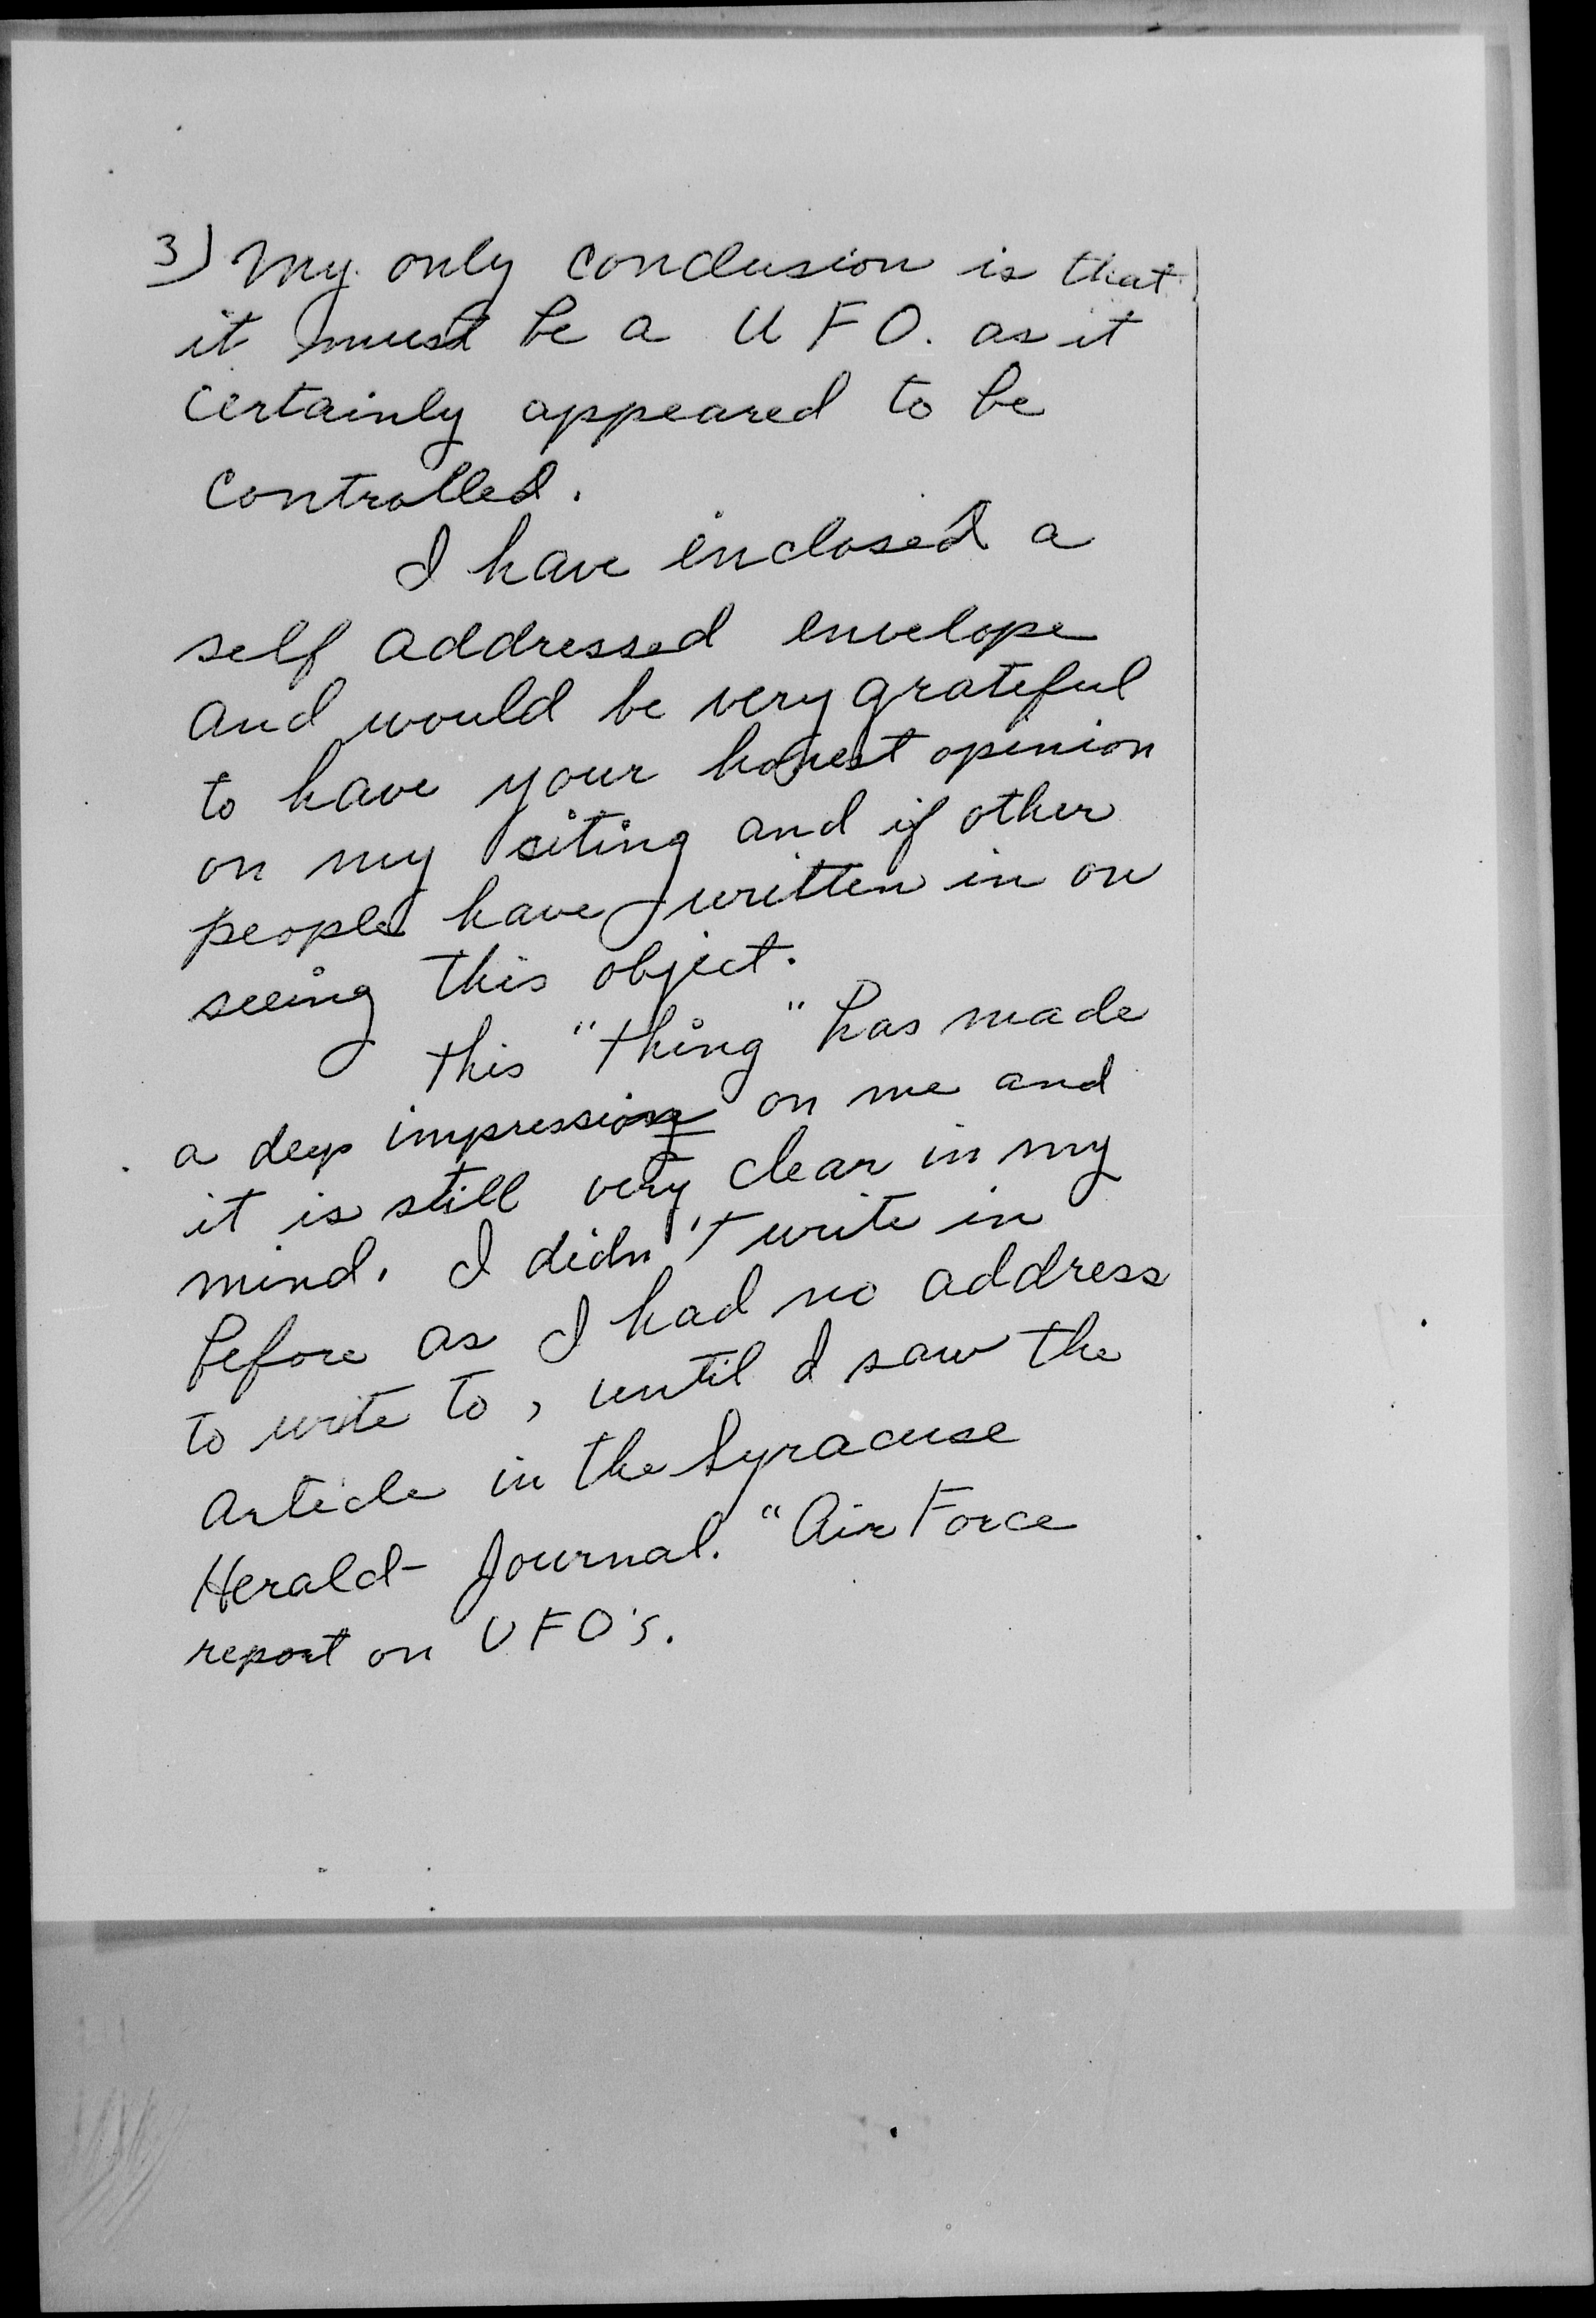 3) My only conclusion is that
it must be a U F O. as it
certainly appeared to be
controlled.
I have inclosed a
self addressed envelope
and would be very grateful
to have your honest opinion
on my siting and if other
people have written in on
seeing this object.
This "thing" has made
a deep impression on me and
it is still very clear in my
mind. I didn't write in
before as I had no address
to write to, until I saw the
article in the Syracuse
Herald-Journal. "Air Force
report on UFO's.